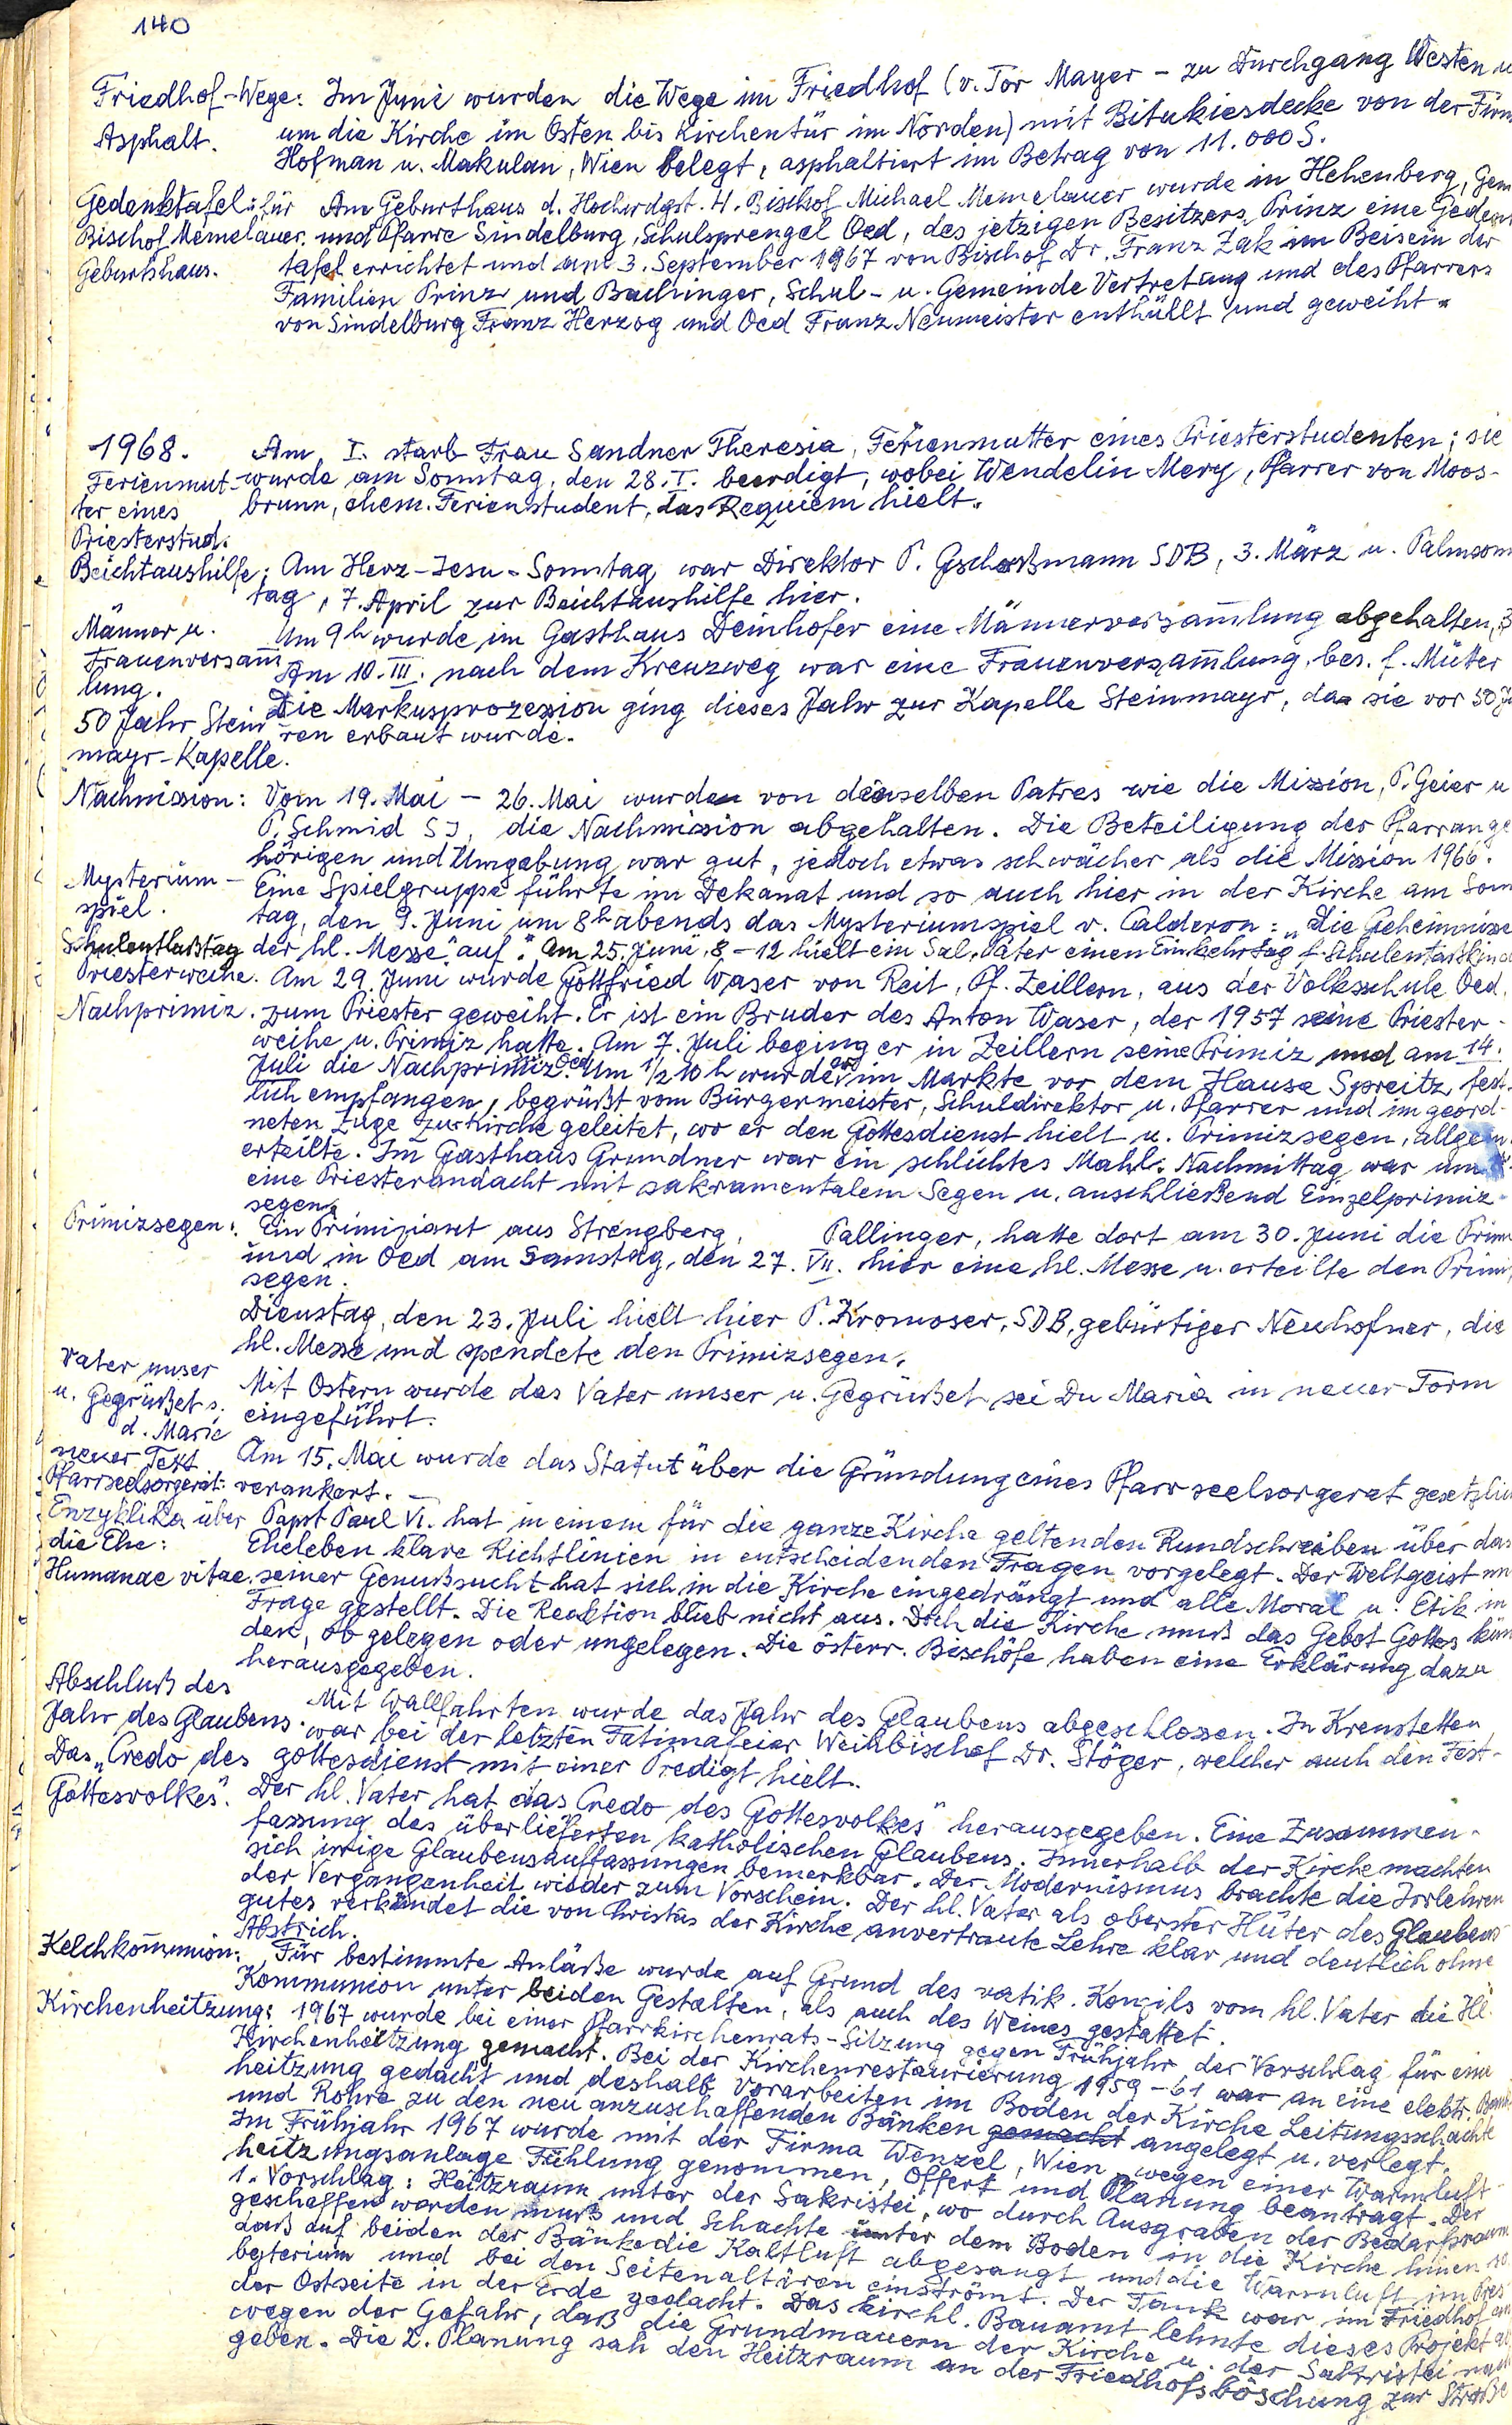 140
Friedhof-Wege: Im Juni wurden die Wege im Friedhof (v. Tor Mayer - zu Durchgang Westen u
Asphalt. um die Kirche im Osten bis Kirchentür im Norden) mit Bitukiesdecke von der Firm
Hofman u. Makulan, Wien belegt, asphaltiert im Betrag von 11.000 S.
Gedenktafel: für Am Geburthaus d. Hochwdgst. H. Bischof Michael Memelauer wurde in Hehenberg, Gem
Bischof Memelauer. und Pfarre Sindelburg, Schulsprengel Oed, des jetzigen Besitzers Prinz eine Gedenk
Geburtshaus. tafel errichtet und am 3. September 1967 von Bischof Dr. Franz Zak im Beisein der
Familien Prinz und Bachinger, Schul- u. Gemeinde Vertretung und des Pfarrers
von Sindelburg Franz Herzog und Oed Franz Neumeister enthüllt und geweiht.
1968. Am I. starb Frau Sandner Theresia, Ferienmutter eines Priesterstudenten; sie
Ferienmut- wurde am Sonntag, den 28. I. beerdigt, wobei Wendelin Mery, Pfarrer von Moos-
ter eines brunn, ehem. Ferienstudent, das Requiem hielt.
Priesterstud.
Beichtaushilfe; Am Herz-Jesu-Sonntag war Direktor P. Gschoßmann SDB, 3. März u. Palmsonn
tag, 7. April zur Beichtaushilfe hier.
Männer u. Um 9h wurde im Gasthaus Deinhofer eine Männerversam̅lung abgehalten, 3
Frauenversam̅ Am 10. III. nach dem Kreuzweg war eine Frauenversam̅lung, bes. f. Mütter
lung.
50 Jahr Stein Die Markusprozession ging dieses Jahr zur Kapelle Steinmayr, da sie vor 50 Ja
mayr-Kapelle. ren erbaut wurde.
Nachmission: Vom 19. Mai - 26. Mai wurden von denselben Patres wie die Mission, P. Geier u
P. Schmid SJ, die Nachmission abgehalten. Die Beteiligung der Pfarrange
hörigen und Umgebung war gut, jedoch etwas schwächer als die Mission 1966.
Mysterium- Eine Spielgruppe führte im Dekanat und so auch hier in der Kirche am Sonn
spiel. tag, den 9. Juni um 8h abends das Mysteriumspiel v. Calderon: "Die Geheimnisse
Schulentlaßtag der hl. Messe" auf. Am 25. Juni, 8-12 hielt ein Sal. Pater einen Einkehrtag f.
Priesterweihe. Am 29. Juni wurde Gottfried Waser von Reit, Pf. Zeillern, aus der Volksschule Oed,
Nachprimiz. zum Priester geweiht. Er ist ein Bruder des Anton Waser, der 1957 seine Priester-
weihe u. Primiz hatte. Am 7. Juli beging er in Zeillern seine Primiz und am 14.
Juli die Nachprimiz Oed. Um 1/2 10 h wurde er im Markte vor dem Hause Spreitz fest-
lich empfangen, begrüßt vom Bürgermeister, Schuldirektor u. Pfarrer und im geord-
neten Zuge zur Kirche geleitet, wo er den Gottesdienst hielt u. Primizsegen, allgem.
erteilte. Im Gasthaus Grundner war ein schlichtes Mahl. Nachmittag war um
eine Priesterandacht mit sakramentalem Segen u. anschließend Einzelprimiz-
segen.
Primizsegen: Ein Primiziant aus Strengberg, Pallinger, hatte dort am 30. Juni die Prim
und in Oed am Samstag, den 27. VII. hier eine hl. Messe u. erteilte den Primiz
segen.
Dienstag, den 23. Juli hielt hier P. Kromoser, SDB, gebürtiger Neuhofner, die
hl. Messe und spendete den Primizsegen.
Vater unser Mit Ostern wurde das Vater unser u. Gegrüßet sei Du Maria in neuer Form
u. Gegrüßet s. eingeführt.
d. Marie
neuer Text Am 15. Mai wurde das Statut über die Gründung eines Pfarrseelsorgerat gesetzlich
Pfarrseelsorgerat: verankert.
Enzyklika über Papst Paul VI. hat in einem für die ganze Kirche geltenden Rundschreiben über das
die Ehe: Eheleben klare Richtlinien in entscheidenden Fragen vorgelegt. Der Weltgeist mi
Humanae vitae. seiner Genußsucht hat sich in die Kirche eingedrängt und alle Moral u. Etik in
Frage gestellt. Die Reaktion blieb nicht aus. Doch die Kirche muß das Gebot Gottes kün
den, ob gelegen oder ungelegen. Die österr. Bischöfe haben eine Erklärung dazu
herausgegeben.
Abschluß des Mit Wallfahrten wurde das Jahr des Glaubens abgeschlossen. In Krenstetten
Jahr des Glaubens. war bei der letzten Fatimafeier Weihbischof Dr. Stöger, welcher auch den Fest-
gottesdienst mit einer Predigt hielt.
Das "Credo des Der hl. Vater hat das "Credo des Gottesvolkes" herausgegeben. Eine Zusammen-
Gottesvolkes". fassung des überlieferten katholischen Glaubens. Innerhalb der Kirche machten
sich irrige Glaubensauffassungen bemerkbar. Der Modernismus brachte die Irrlehren
der Vergangenheit wieder zum Vorschein. Der hl. Vater als oberster Hüter des Glaubens
gutes verkündet die von Christus der Kirche anvertraute Lehre klar und deutlich ohne
Abstrich.
Kelchkom̅union: Für bestimmte Anläße wurde auf Grund des vatik. Konzils vom hl. Vater die Hl.
Kommunion unter beiden Gestalten, als auch des Weines gestattet.
Kirchenheitzung: 1967 wurde bei einer Pfarrkirchenrats-Sitzung gegen Frühjahr der Vorschlag für eine
Kirchenheitzung gemacht. Bei der Kirchenrestaurierung 1959-61 war an eine elektr. Bank
heitzung gedacht und deshalb Vorarbeiten im Boden der Kirche Leitungsschächte
und Rohre zu den neu anzuschaffenden Bänken gemacht angelegt u. verlegt.
Im Frühjahr 1967 wurde mit der Firma Wenzel, Wien, wegen einer Warmluft-
heitzungsanlage Fühlung genommen, Offert und Planung beantragt. Der
1. Vorschlag: Heitzraum unter der Sakristei, wo durch Ausgraben der Bedarfsraum
geschaffen worden muß und Schächte unter dem Boden in die Kirche hinein so
daß auf beiden der Bänke die Kaltluft abgesaugt und die Warmluft im Pres
byterium und bei den Seitenaltären einströmt. Der Tank war im Friedhof an
der Ostseite in der Erde gedacht. Das kirchl. Bauamt lehnte dieses Projekt ab
wegen der Gefahr, daß die Grundmauern der Kirche u. der Sakristei nach
geben. Die 2. Planung sah den Heitzraum an der Friedhofsböschung zur Straße